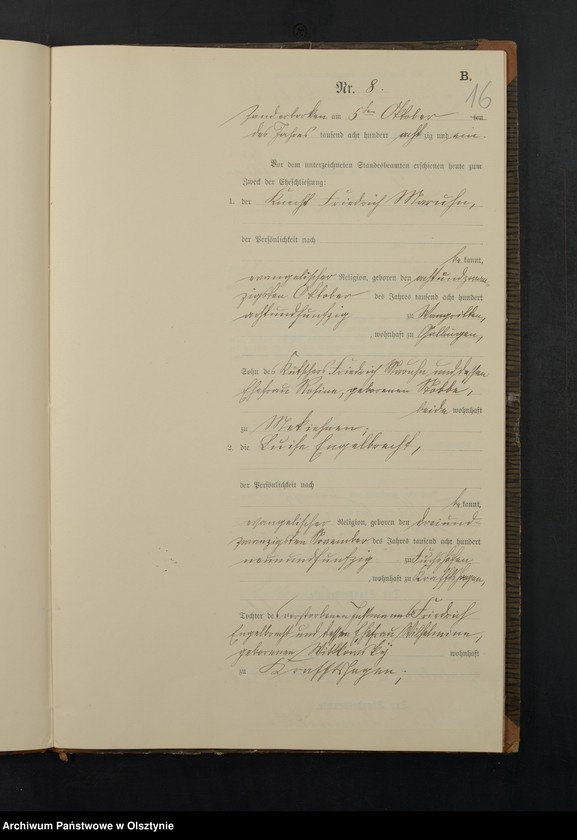 B.
16
Nr. 8.
am 5ten Oktober
des Jahres tausend acht hundert achtzig und ein.
Vor dem unterzeichneten Standesbeamten erschienen heute zum
Zweck der Eheschließung:
1. der Knecht Friedrich Maruhn,
der Persönlichkeit nach
be kannt,
evangelischer Religion, geboren den achtundzwan-
zigsten Oktober des Jahres tausend acht hundert
achtundfünfzig zu Wangritten,
, wohnhaft zu Gallingen,
Sohn des Kutschers Friedrich Maruhn und dessen
Ehefrau Rosina, geborenen Stobbe,
beide wohnhaft
zu
2. die Luise Engelbrecht,
der Persönlichkeit nach
be kannt,
evangelischer Religion, geboren den dreiund-
zwanzigsten November des Jahres tausend acht hundert
neunundfünfzig zu
, wohnhaft zu Krafftshagen,
Tochter des verstorbenen Friedrich
Engelbrecht und dessen Ehefrau Wilhelmine,
geborenen wohnhaft
zu Krafftshagen,
Archiwum Państwowe w Olsztynie